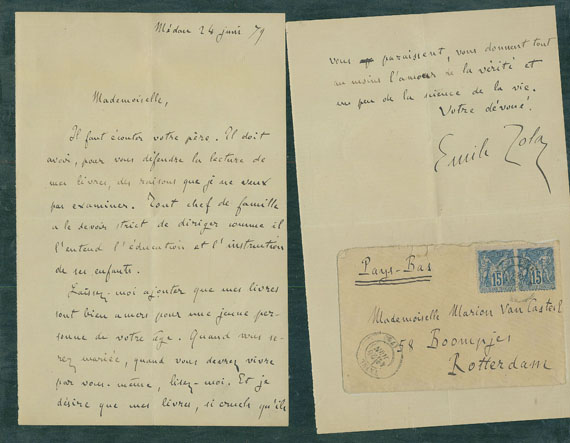 Médan 24 juin 79
Mademoiselle,
Il faut écouter votre père. Il doit
avoir, pour vous défendre la lecture de
mes livres, des raisons que je ne veux
pas examiner. Tout chef de famille
a le devoir strict de diriger comme il
l'entend l'éducation et l'instruction
de ses enfants.
Laissez-moi ajouter que mes livres
sont bien amers pour une jeune per-
sonne de votre âge. Quand vous se-
rez mariée, quand vous devrez vivre
par vous-même, lisez-moi. Et je
désire que mes livres, si cruels qu'ils
vous paraissent, vous donnent tout
au moins l'amour de la vérité et
un peu de la science de la vie.
Votre dévoué.
Emile Zola
Pays-Bas
15 15
Mademoiselle Marion Van Casteel
58 Boompjes
Rotterdam